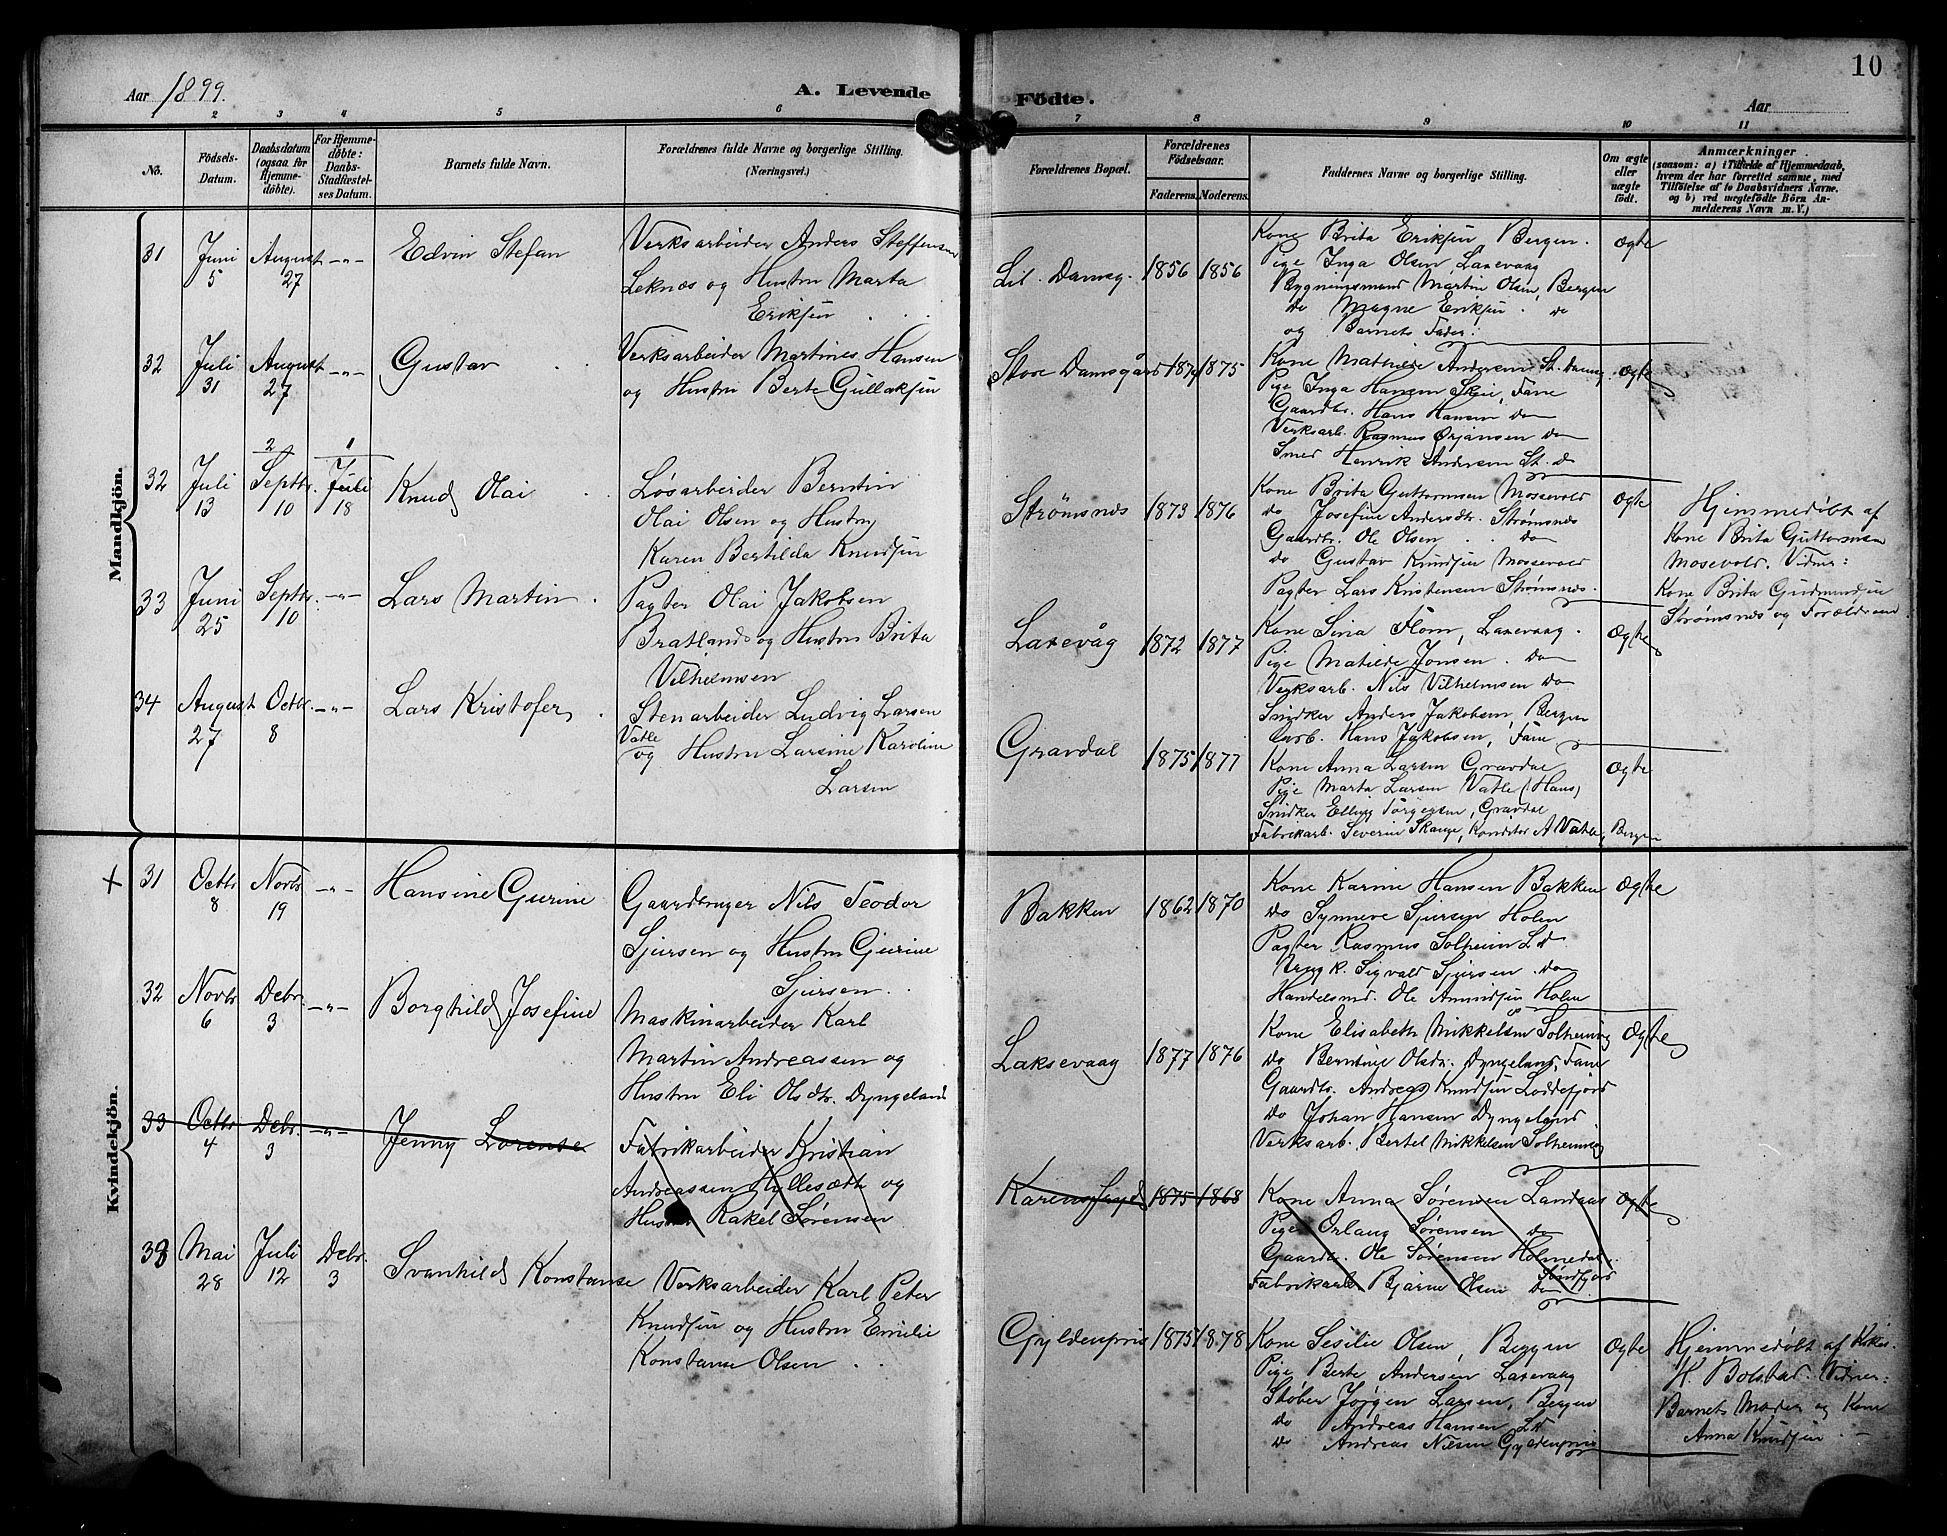 Aar 1899.
A. Levende
Födte.
Aar
10
1 2 3 4 5 6 7 8 9 10 11
No.
Födsels-Datum.
Daabsdatum (ogsaa for Hjemme-døbte).
For Hjemme-döbte: Daabs-Stadfæstel-ses Datum.
Barnets fulde Navn.
Forældrenes fulde Navne og borgerlige Stilling. (Næringsvei.)
Forældrenes Bopæl.
Forældrenes Födselsaar.
Faderens. Moderens.
Faddernes Navne og borgerlige Stilling.
Om ægte eller uægte födt.
Anmærkninger
(saasom: a) i Tilfælde af Hjemmedaab,
hvem der har forrettet samme, med
Tilföielse af to Daabsvidners Navne.
og b) ved uægtefödte Börn An-
melderens Navn m. V.)
Mandkjön.
31 Juni 5 August 27 -"- Edvin Stefan
Verksarbeider Anders Steffensen
Leknæs og Hustru Marta
Eriksen
Lil. Damsg. 1856 1856
Kone Brita Eriksen, Bergen.
Pige Inga Olsen, Laxevaag
Bygningsmand Martin Olsen, Bergen
do Magne Eriksen. do
og Barnets Fader.
Ægte
32 Juli 31 August 27 -"- Gustav
Verksarbeider Martines Hansen
og Hustru Berte Gullaksen
Store Damsgård 1875
Kone Mathilde Andersen St. Damsg.
Pige Inga Hansen Skei, Fane
Gaardbr. Hans Hansen do
Verksarb. Rasmus Ørjansen do
Smed Henrik Andersen St. d
Ægte
32 Juli 13 2/9 Septbr. 10 1 Juli 18 Knud Olai
Løsarbeider Berntin
Olai Olsen og Hustru
Karen Bertilda Knudsen
Strømsnes 1873 1876
Kone Brita Guttormsen Mosevold
do Josefine Andersdtr. Strømsnes
Gaardbr. Ole Olsen do
do Gustav Knudsen Mosevold
Pagter Lars Kristensen Strømsnes.
Ægte
Hjemmedøbt af
Kone Brita Guttormsen
Mosevold. Vidner:
Kone Brita Gudmundsen
Strømsnes og Forældrene
33 Juni 25 Septbr. 10 -"- Lars Martin
Pagter Olai Jakobsen
Bratland og Hustru Brita
Vilhelmsen
Laxevåg 1872 1877
Kone Sina Flom, Laxevaag.
Pige Matilde Jonsen. do
Verksarb. Nils Vilhelmsen do
Snidker Anders Jakobsen, Bergen
Arb. Hans Jakobsen, Fane
Ægte
34 August 27 Octbr. 8 -"- Lars Kristofer
Stenarbeider Ludvig Larsen
Vatle
og Hustru Larsine Karoline
Larsen
Gravdal 1875 1877
Kone Anna Larsen Gravdal
Pige Marta Larsen Vatle (Hans)
Snidker Elling Torgersen, Gravdal
Fabrikarb. Severin Skauge, Konditor A Vatle, Bergen
Ægte
Kvindekjön.
+ 31 Octbr 8 Novbr 19 -"- Hansine Gurine
Gaardbruger Nils Teodor
Sjursen og Hustru Gjurine
Sjursen
Bakken 1862 1870
Kone Karine Hansen Bakken
do Synneve Sjursen Holen
Pagter Rasmus Solheim Ld
Ungk. Sigvald Sjursen do
Handelsmd. Ole Amundsen Holen
Ægte
32 Novbr 6 Debr. 3 -"- Borghild Josefine
Maskinarbeider Karl
Martin Andreassen og
Hustru Eli Olsdtr. Dyngeland
Laksevaag 1877 1876
Kone Elisabeth Mikkelsen Solheimsvig
do Berntine Olsdtr. Dyngeland, Fane
Gaardbr. Andreas Knudsen Loddefjord
do Johan Hansen Dyngeland
Verksarb. Bertel Mikkelsen Solheimsvig
Ægte
33 Octbr 4 Debr. 3 -"- Jenny Lorense
Fabrikarbeider Kristian
Andreassen Hyllesæth og
Hustru Rakel Sørensen
Karensfryd 1875 1868
Kone Anna Sørensen Landaas
Pige Orlaug Sørensen do
Gaardbr. Ole Sørensen Holmedal
Søndfjord
Fabrikarb Bjarne Olsen do
Ægte
33 Mai 28 Juli 12 Debr. 3 Svanhild Konstanse
Verksarbeider Karl Peter
Knudsen og Hustru Emilie
Konstanse Olsen
Gyldenpris 1875 1878
Kone Sesilie Olsen, Bergen
Pige Berte Andersen Laxevaag
Støber Jørgen Larsen, Bergen
do Andreas Hansen Ld
do Andreas Nilsen Gyldenpris
Ægte
Hjemmedøbt af
H. Bolstad. Vidner:
Barnets Moder og Kone
Anna Knudsen